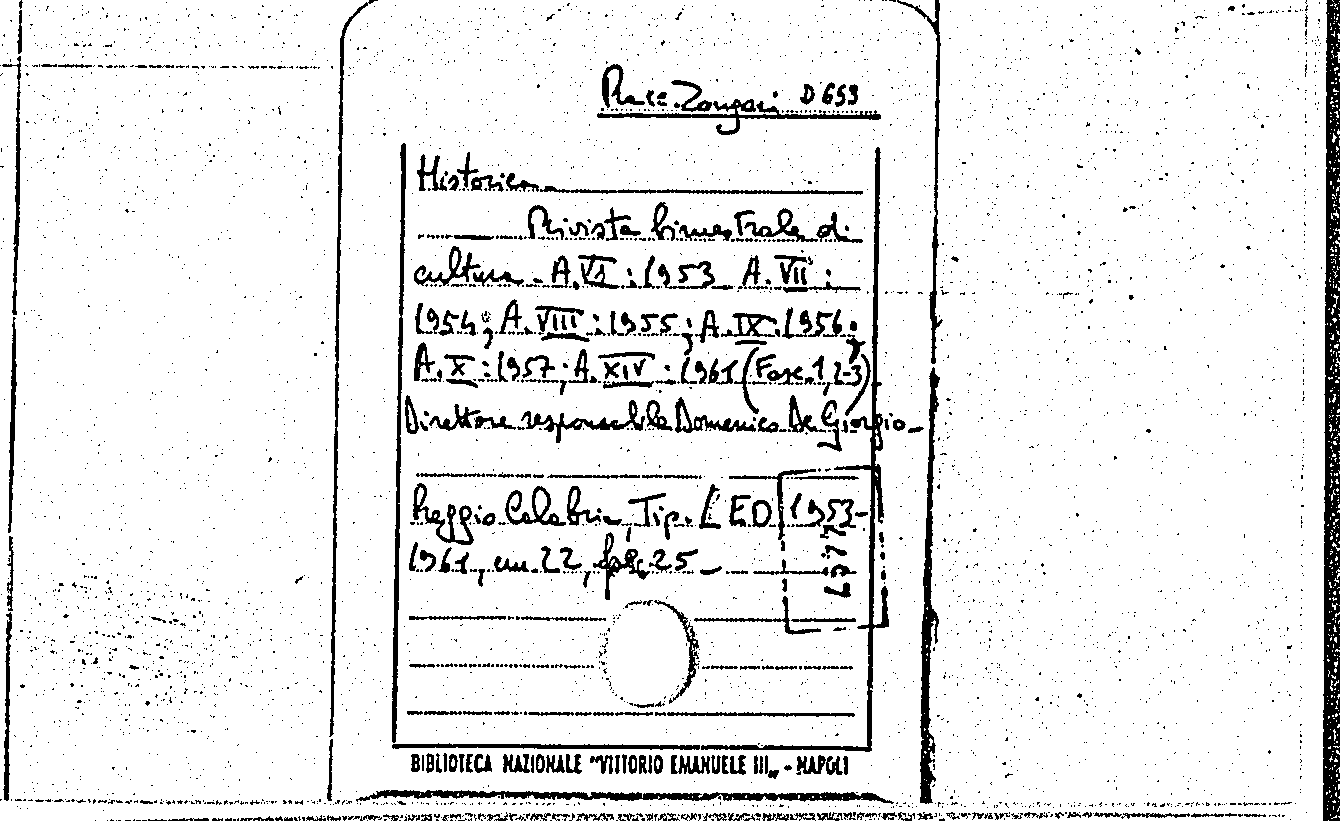 Race. Zangari D 659
Historica
Rivista bimestrale di
cultura - A. VI : 1953 A. VII :
1954; A. VIII : 1955; A. IX : 1956;
A. X : 1957; A. XIV : 1961 (Fasc. 1, 2-3)
Direttore responsabile Domenico De Giorgio -
Reggio Calabria, Tip. L ED 1953-
1961, cm. 22, 25 -
BIBLIOTECA NAZIONALE "VITTORIO EMANUELE III„ - NAPOLI